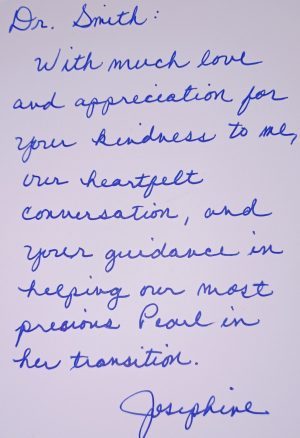 Dr. Smith:
With much love
and appreciation for
your kindness to me,
our heartfelt
conversation, and
your guidance in
helping our most
precious Pearl in
her transition.
Josephine